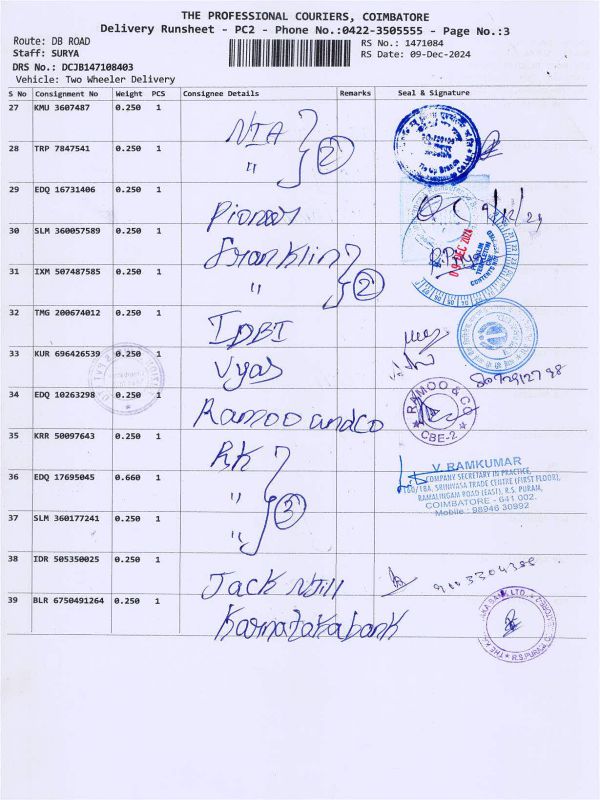 THE PROFESSIONAL COURIERS, COIMBATORE
Delivery Runsheet - PC2 - Phone No.:0422-3505555 - Page No.:3
Route: DB ROAD
RS No.: 1471084
Staff: SURYA
RS Date: 09-Dec-2024
DRS No.: DCJB147108403
Vehicle: Two Wheeler Delivery
S No Consignment No Weight PCS Consignee Details Remarks Seal & Signature
27 KMU 3607487 0.250 1 NIA
28 TRP 7847541 0.250 1 " 2
29 EDQ 16731406 0.250 1 Pioneer 9/12/24
30 SLM 360057589 0.250 1 Franklin
09 DEC 2024
31 IXM 507487585 0.250 1 " 2
32 TMG 200674012 0.250 1 IDBI
33 KUR 696426539 0.250 1 Vyas
34 EDQ 10263298 0.250 1 Ramoo and co
RAMOO & CO
CBE-2
35 KRR 50097643 0.250 1 RK
36 EDQ 17695045 0.660 1 " 3
V. RAMKUMAR
COMPANY SECRETARY IN PRACTICE,
SRINIVASA TRADE CENTRE (FIRST FLOOR),
RAMALINGAM ROAD (EAST), R.S. PURAM,
COIMBATORE - 641 002.
Mobile : 98946 30992
37 SLM 360177241 0.250 1 "
38 IDR 505350025 0.250 1 Jack Njill
39 BLR 6750491264 0.250 1 Karnatakabank